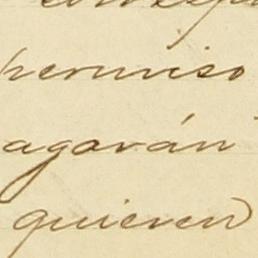 permiso
agarán
quieren